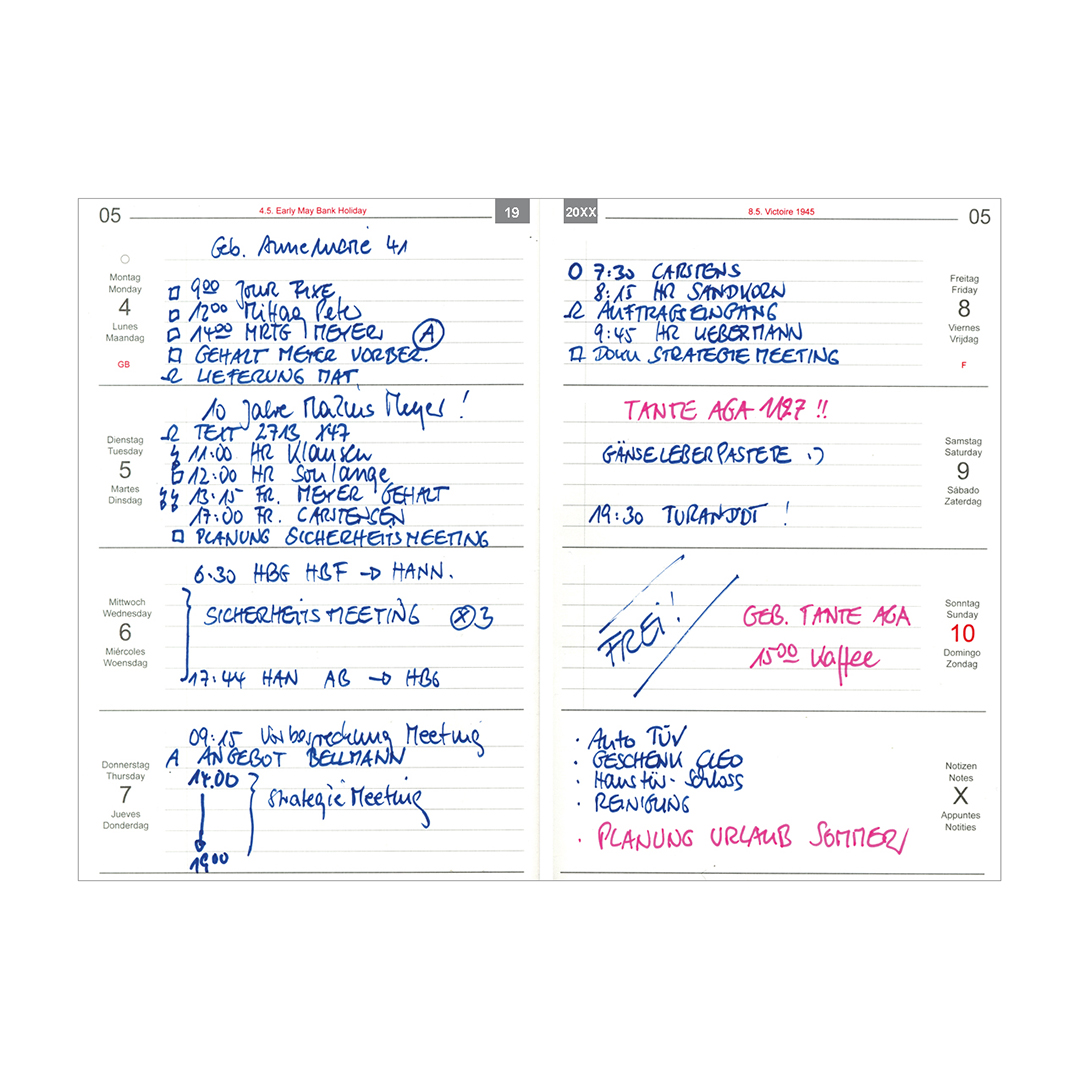 05
4.5. Early May Bank Holiday
19
Geb. Annemarie 41
Montag
Monday
4
Lunes
Maandag
GB
900 JOUR FIXE
1200 Mittag Peter
1400 MRTG MEYER A
GEHALT MEYER VORBER.
LIEFERUNG MAT.
Dienstag
Tuesday
5
Martes
Dinsdag
10 Jahre Marius Meyer!
TEXT 2713 X47
11:00 HR Klausen
12:00 HR Soulange
13:15 FR. MEYER GEHALT
17:00 FR. CARSTENSEN
PLANUNG SICHERHEITSMEETING
Mittwoch
Wednesday
6
Miércoles
Woensdag
6.30 HBG HBF → HANN.
SICHERHEITSMEETING X 3
17:44 HAN AB → HBG
Donnerstag
Thursday
7
Jueves
Donderdag
09:15 Vorbesprechung Meeting
A ANGEBOT BELLMANN
14.00
Strategie Meeting
1900
20XX
8.5. Victoire 1945
05
7:30 CARSTENS
8:15 HR SANDKORN
AUFTRAGSEINGANG
9:45 HR UEBERMANN
DOKU STRATEGIEMEETING
Freitag
Friday
8
Viernes
Vrijdag
F
TANTE AGA !!
GÄNSELEBERPASTETE :)
19:30 TURANDOT !
Samstag
Saturday
9
Sábado
Zaterdag
FREI!
GEB. TANTE AGA
1500 Kaffee
Sonntag
Sunday
10
Domingo
Zondag
· Auto TÜV
· GESCHENK CLEO
· Haustür-Schloss
· REINIGUNG
· PLANUNG URLAUB SOMMER
Notizen
Notes
X
Appuntes
Notities